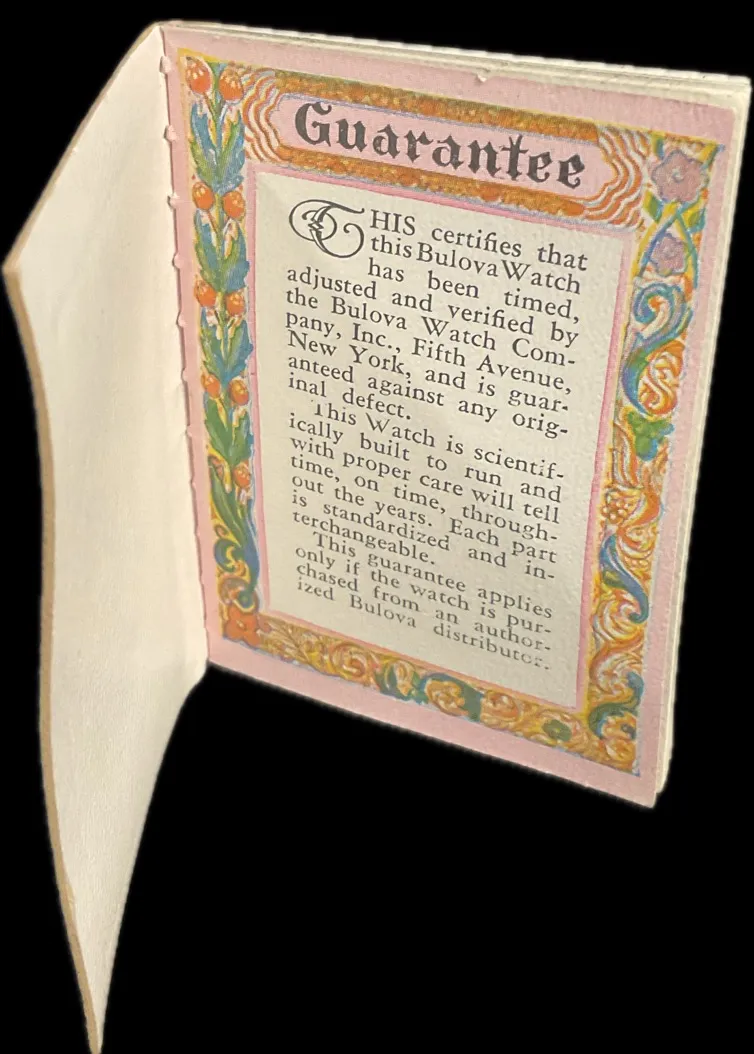 Guarantee
THIS certifies that
this Bulova Watch
has been timed,
adjusted and verified by
the Bulova Watch Com-
pany, Inc., Fifth Avenue,
New York, and is guar-
anteed against any orig-
inal defect.
This Watch is scientif-
ically built to run and
with proper care will tell
time, on time, through-
out the years. Each part
is standardized and in-
terchangeable.
This guarantee applies
only if the watch is pur-
chased from an author-
ized Bulova distributor.